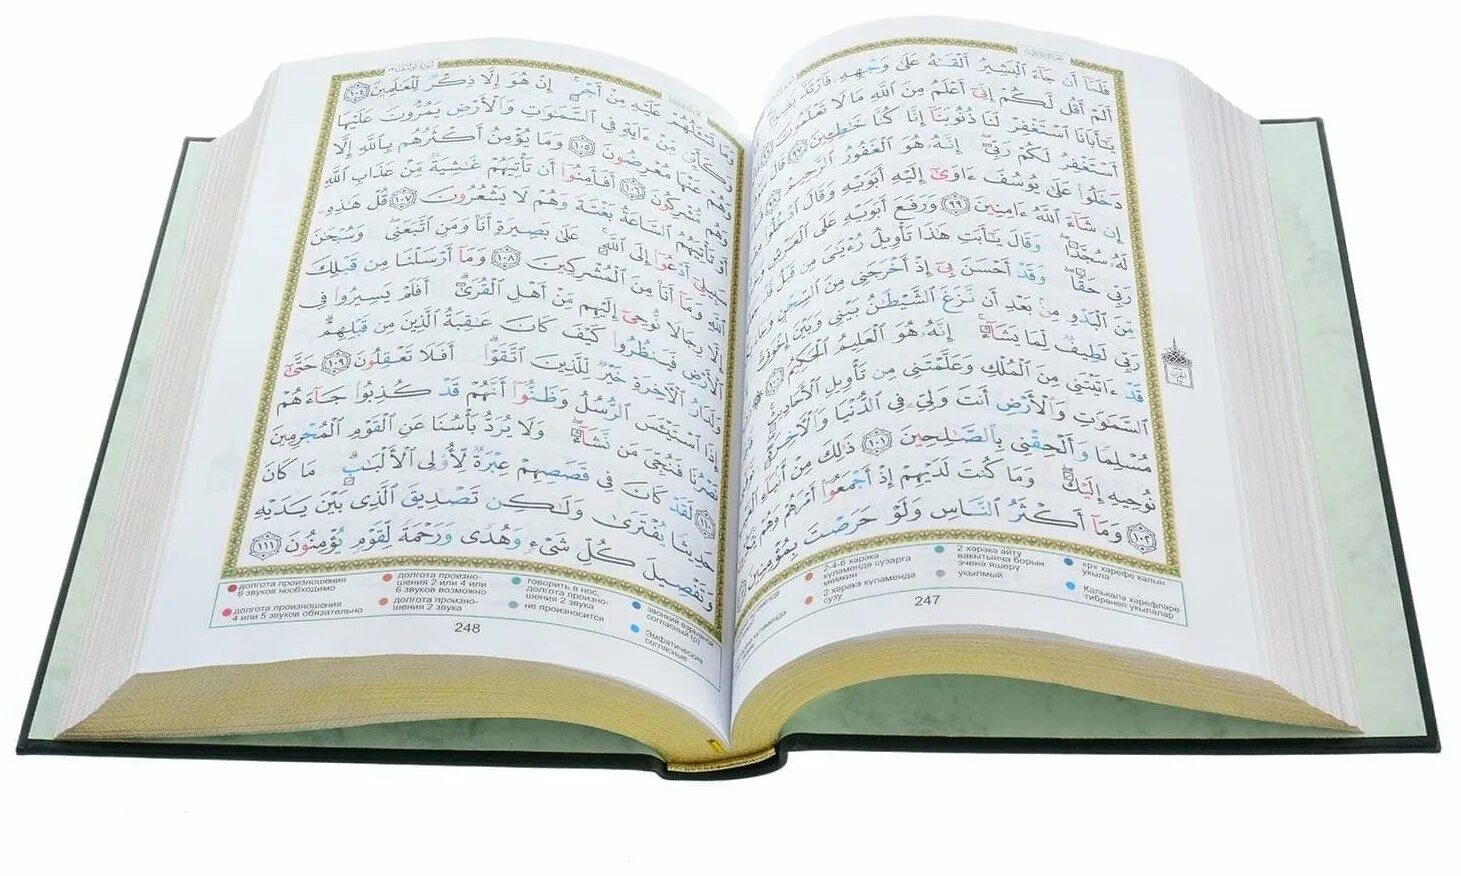 فَلَمَّآ أَن جَآءَ ٱلْبَشِيرُ أَلْقَىٰهُ عَلَىٰ وَجْهِهِۦ فَٱرْتَدَّ بَصِيرًا
أَلَمْ أَقُل لَّكُمْ إِنِّىٓ أَعْلَمُ مِنَ ٱللَّهِ مَا لَا تَعْلَمُونَ
يَٰٓأَبَانَا ٱسْتَغْفِرْ لَنَا ذُنُوبَنَآ إِنَّا كُنَّا خَٰطِـِٔينَ ٩٧ قَالَ
أَسْتَغْفِرُ لَكُمْ رَبِّىٓ إِنَّهُۥ هُوَ ٱلْغَفُورُ ٱلرَّحِيمُ
دَخَلُوا۟ عَلَىٰ يُوسُفَ ءَاوَىٰٓ إِلَيْهِ أَبَوَيْهِ وَقَالَ ٱدْخُلُوا۟
إِن شَآءَ ٱللَّهُ ءَامِنِينَ ٩٩ وَرَفَعَ أَبَوَيْهِ عَلَى ٱلْعَرْشِ
لَهُۥ سُجَّدًا ۖ وَقَالَ يَٰٓأَبَتِ هَٰذَا تَأْوِيلُ رُءْيَٰىَ مِن قَبْلُ قَدْ
رَبِّى حَقًّا ۖ وَقَدْ أَحْسَنَ بِىٓ إِذْ أَخْرَجَنِى مِنَ ٱلسِّجْنِ وَجَآءَ
مِّنَ ٱلْبَدْوِ مِنۢ بَعْدِ أَن نَّزَغَ ٱلشَّيْطَٰنُ بَيْنِى وَبَيْنَ إِخْوَتِىٓ
رَبِّى لَطِيفٌ لِّمَا يَشَآءُ ۚ إِنَّهُۥ هُوَ ٱلْعَلِيمُ ٱلْحَكِيمُ ١٠٠
قَدْ ءَاتَيْتَنِى مِنَ ٱلْمُلْكِ وَعَلَّمْتَنِى مِن تَأْوِيلِ ٱلْأَحَادِيثِ
ٱلسَّمَٰوَٰتِ وَٱلْأَرْضِ أَنتَ وَلِىِّۦ فِى ٱلدُّنْيَا وَٱلْءَاخِرَةِ
مُسْلِمًا وَأَلْحِقْنِى بِٱلصَّٰلِحِينَ ١٠١ ذَٰلِكَ مِنْ أَنۢبَآءِ
نُوحِيهِ إِلَيْكَ ۖ وَمَا كُنتَ لَدَيْهِمْ إِذْ أَجْمَعُوٓا۟ أَمْرَهُمْ وَهُمْ
١٠٢ وَمَآ أَكْثَرُ ٱلنَّاسِ وَلَوْ حَرَصْتَ بِمُؤْمِنِينَ
2-4-6 хәрәкә күләмендә сузарга мөмкин
2 хәрәкә күләмендә сузу
2 хәрәкә әйтү вакытынча борын эченә яшерү
укылмый
ерь хәрефе калын укыла
Калькалә хәрефләре тибрәнеп укылалар
247
وَمَا تَسْـَٔلُهُمْ عَلَيْهِ مِنْ أَجْرٍ ۚ إِنْ هُوَ إِلَّا ذِكْرٌ لِّلْعَٰلَمِينَ ١٠٤
وَكَأَيِّن مِّنْ ءَايَةٍ فِى ٱلسَّمَٰوَٰتِ وَٱلْأَرْضِ يَمُرُّونَ عَلَيْهَا
وَهُمْ عَنْهَا مُعْرِضُونَ ١٠٥ وَمَا يُؤْمِنُ أَكْثَرُهُم بِٱللَّهِ إِلَّا
وَهُم مُّشْرِكُونَ ١٠٦ أَفَأَمِنُوٓا۟ أَن تَأْتِيَهُمْ غَٰشِيَةٌ مِّنْ عَذَابِ ٱللَّهِ
أَوْ تَأْتِيَهُمُ ٱلسَّاعَةُ بَغْتَةً وَهُمْ لَا يَشْعُرُونَ ١٠٧ قُلْ هَٰذِهِۦ
سَبِيلِىٓ أَدْعُوٓا۟ إِلَى ٱللَّهِ ۚ عَلَىٰ بَصِيرَةٍ أَنَا۠ وَمَنِ ٱتَّبَعَنِى ۖ وَسُبْحَٰنَ
ٱللَّهِ وَمَآ أَنَا۠ مِنَ ٱلْمُشْرِكِينَ ١٠٨ وَمَآ أَرْسَلْنَا مِن قَبْلِكَ
إِلَّا رِجَالًا نُّوحِىٓ إِلَيْهِم مِّنْ أَهْلِ ٱلْقُرَىٰٓ ۗ أَفَلَمْ يَسِيرُوا۟ فِى
ٱلْأَرْضِ فَيَنظُرُوا۟ كَيْفَ كَانَ عَٰقِبَةُ ٱلَّذِينَ مِن قَبْلِهِمْ ۗ
وَلَدَارُ ٱلْءَاخِرَةِ خَيْرٌ لِّلَّذِينَ ٱتَّقَوْا۟ ۗ أَفَلَا تَعْقِلُونَ ١٠٩ حَتَّىٰٓ
إِذَا ٱسْتَيْـَٔسَ ٱلرُّسُلُ وَظَنُّوٓا۟ أَنَّهُمْ قَدْ كُذِبُوا۟ جَآءَهُمْ
نَصْرُنَا فَنُجِّىَ مَن نَّشَآءُ ۖ وَلَا يُرَدُّ بَأْسُنَا عَنِ ٱلْقَوْمِ ٱلْمُجْرِمِينَ
١١٠ لَقَدْ كَانَ فِى قَصَصِهِمْ عِبْرَةٌ لِّأُو۟لِى ٱلْأَلْبَٰبِ ۗ مَا كَانَ
حَدِيثًا يُفْتَرَىٰ وَلَٰكِن تَصْدِيقَ ٱلَّذِى بَيْنَ يَدَيْهِ
وَتَفْصِيلَ كُلِّ شَىْءٍ وَهُدًى وَرَحْمَةً لِّقَوْمٍ يُؤْمِنُونَ ١١١
долгота произношения 6 звуков необходимо
долгота произношения 4 или 5 звуков обязательно
долгота произно-
шения 2 или 4 или
6 звуков возможно
долгота произно-
шения 2 звука
говорить в нос,
долгота произно-
шения 2 звука
не произносится
звонкий взрывной
согласный (р)
Эмфатические
согласные
248